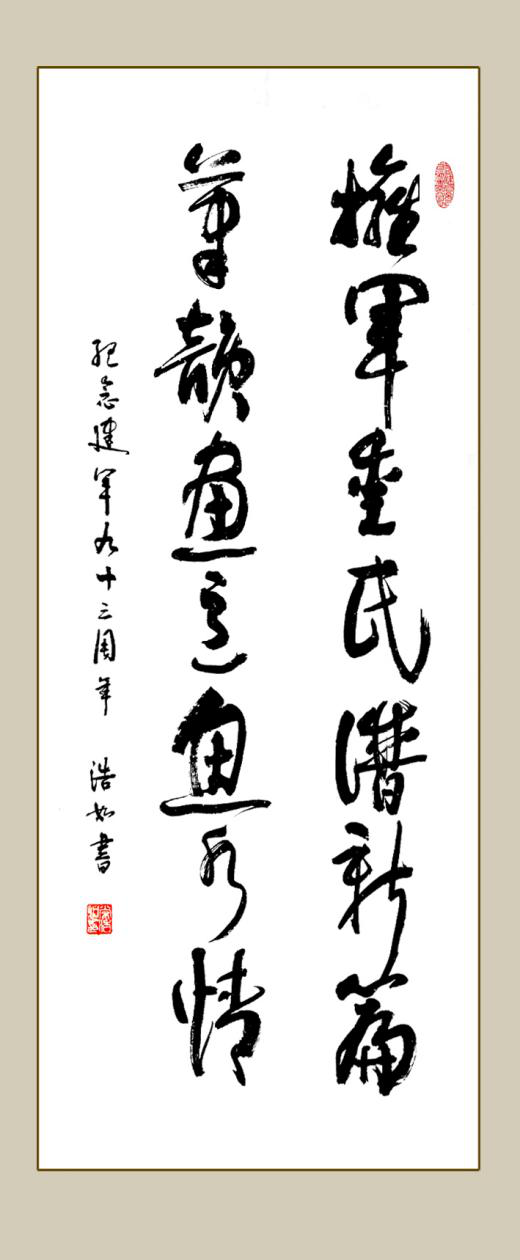 擁軍愛民譜新篇
筆韻畫意魚水情
紀念建軍九十三周年 浩如書